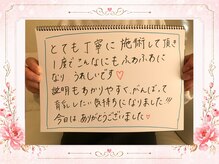 とても丁寧に施術して頂き
1度でこんなにもふわふわに
なりうれしいです♡
説明もわかりやすく、がんばって
育乳したい気持ちになりました!!!
今日はありがとうございました♡